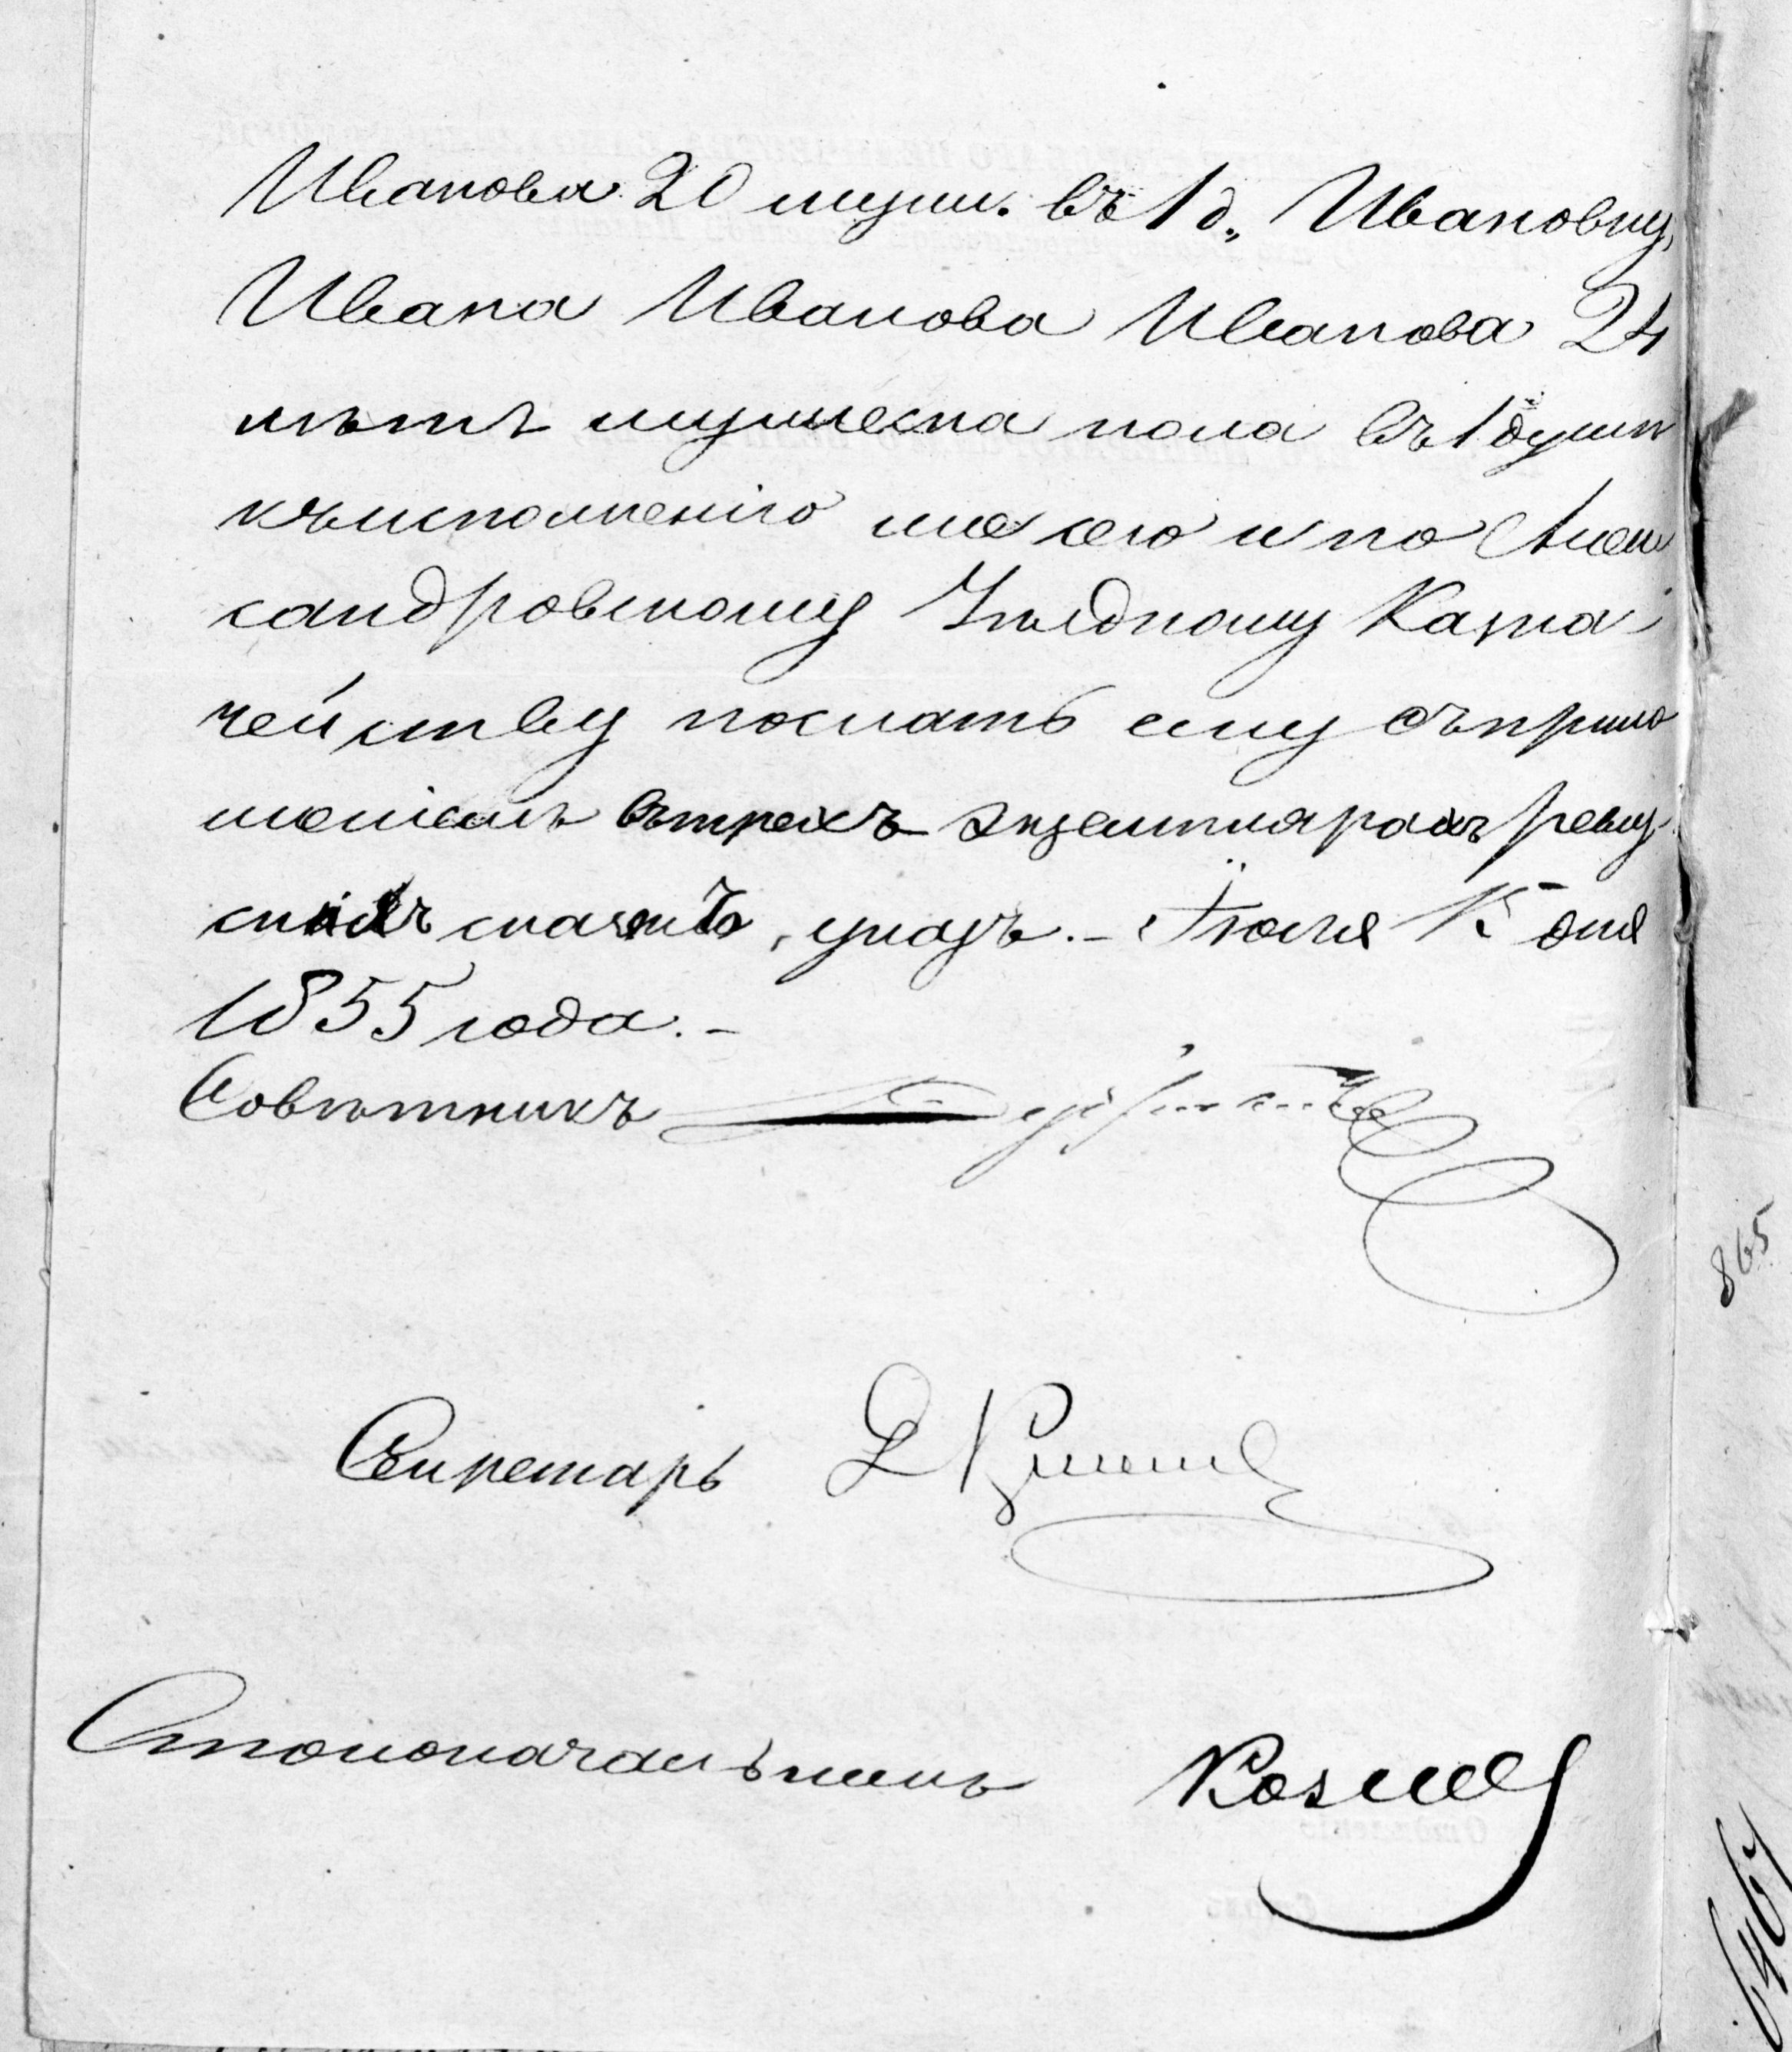 Иванова 20 мужск. въ 1 д., Ивановну,
Ивана Иванова Иванова 24
лѣтъ мужеска пола въ 1 душѣ
къ исполненію же сего и по Алек
сандровскому Уѣздному Казна
чейству послать ему съ прило
женіемъ въ трехъ экземплярахъ реви
скихъ сказокъ, указъ. – Іюля 15 дня
1855 года. –
Совѣтникъ
Секретарь
Столоначальникъ Козлов
865
6467